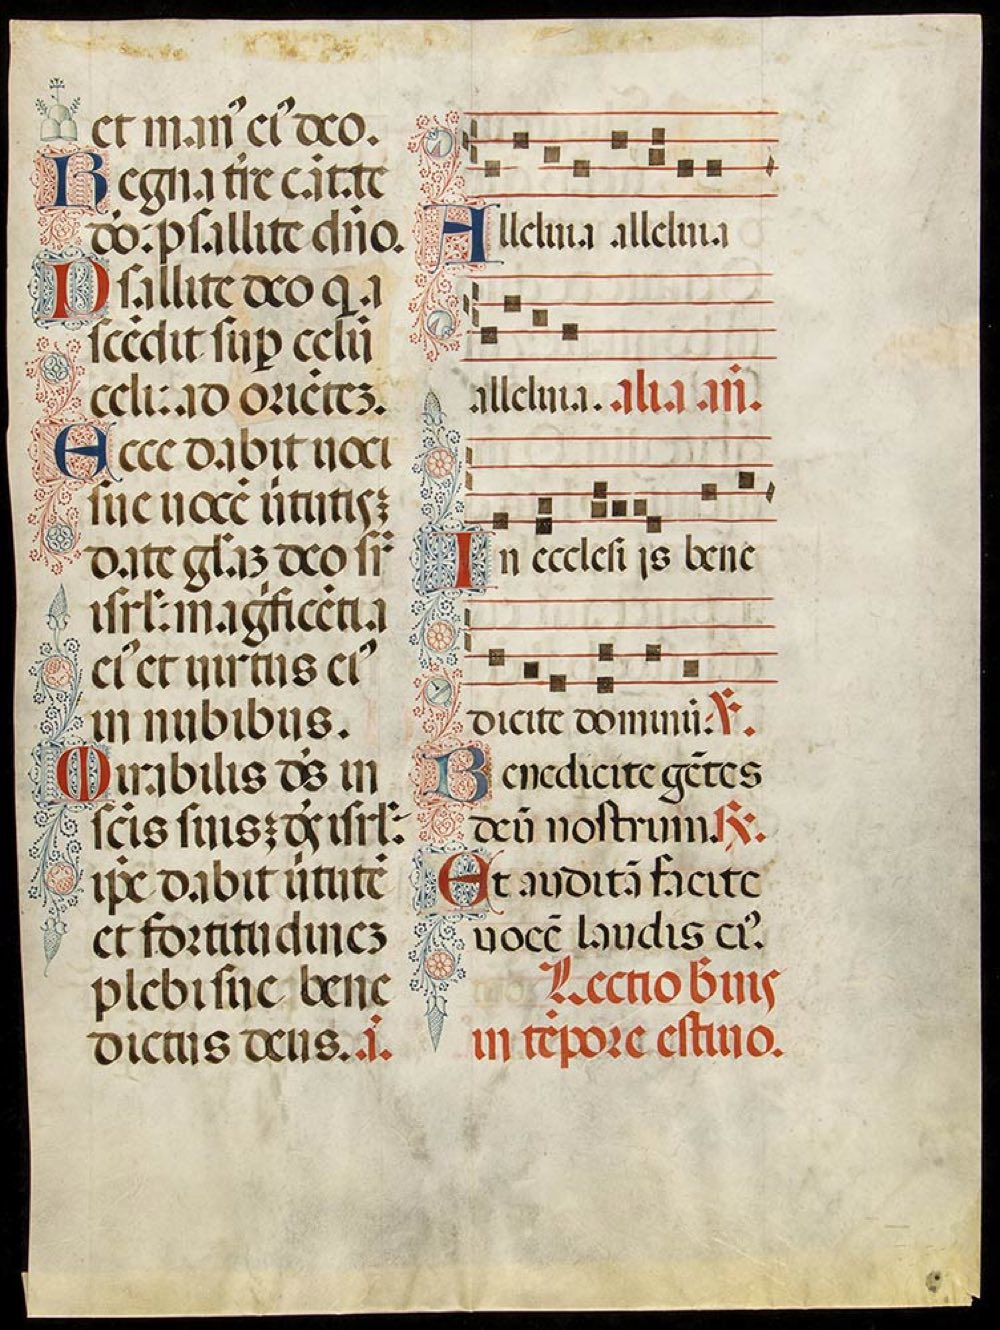 et man᷒ ei᷒ deo.
Regna tr̄e cātate
dō: psallite dn̄o.
Psallite deo q a
scēdit sup celū
celi: ad oriētez.
Ecce dabit uoci
sue uocē ũtutis;
date gl̄az deo sr̄
isrl̄: magn̄ficētia
ei᷒ et uirtus ei᷒
in nubibus.
Mirabilis dē in
scīs suis; dē isrl̄:
ip̄e dabit ũtutē
et fortitudinez
plebi sue bene
dictus deus. .i.
Alleluia alleluia
alleluia. alia añ.
In ecclesi is bene
dicite dominū. ℣.
Benedicite gētes
deū nostrum. ℟.
Et auditā facite
uocē laudis ei᷒.
Lectio b̄uis
in tēpore estiuo.